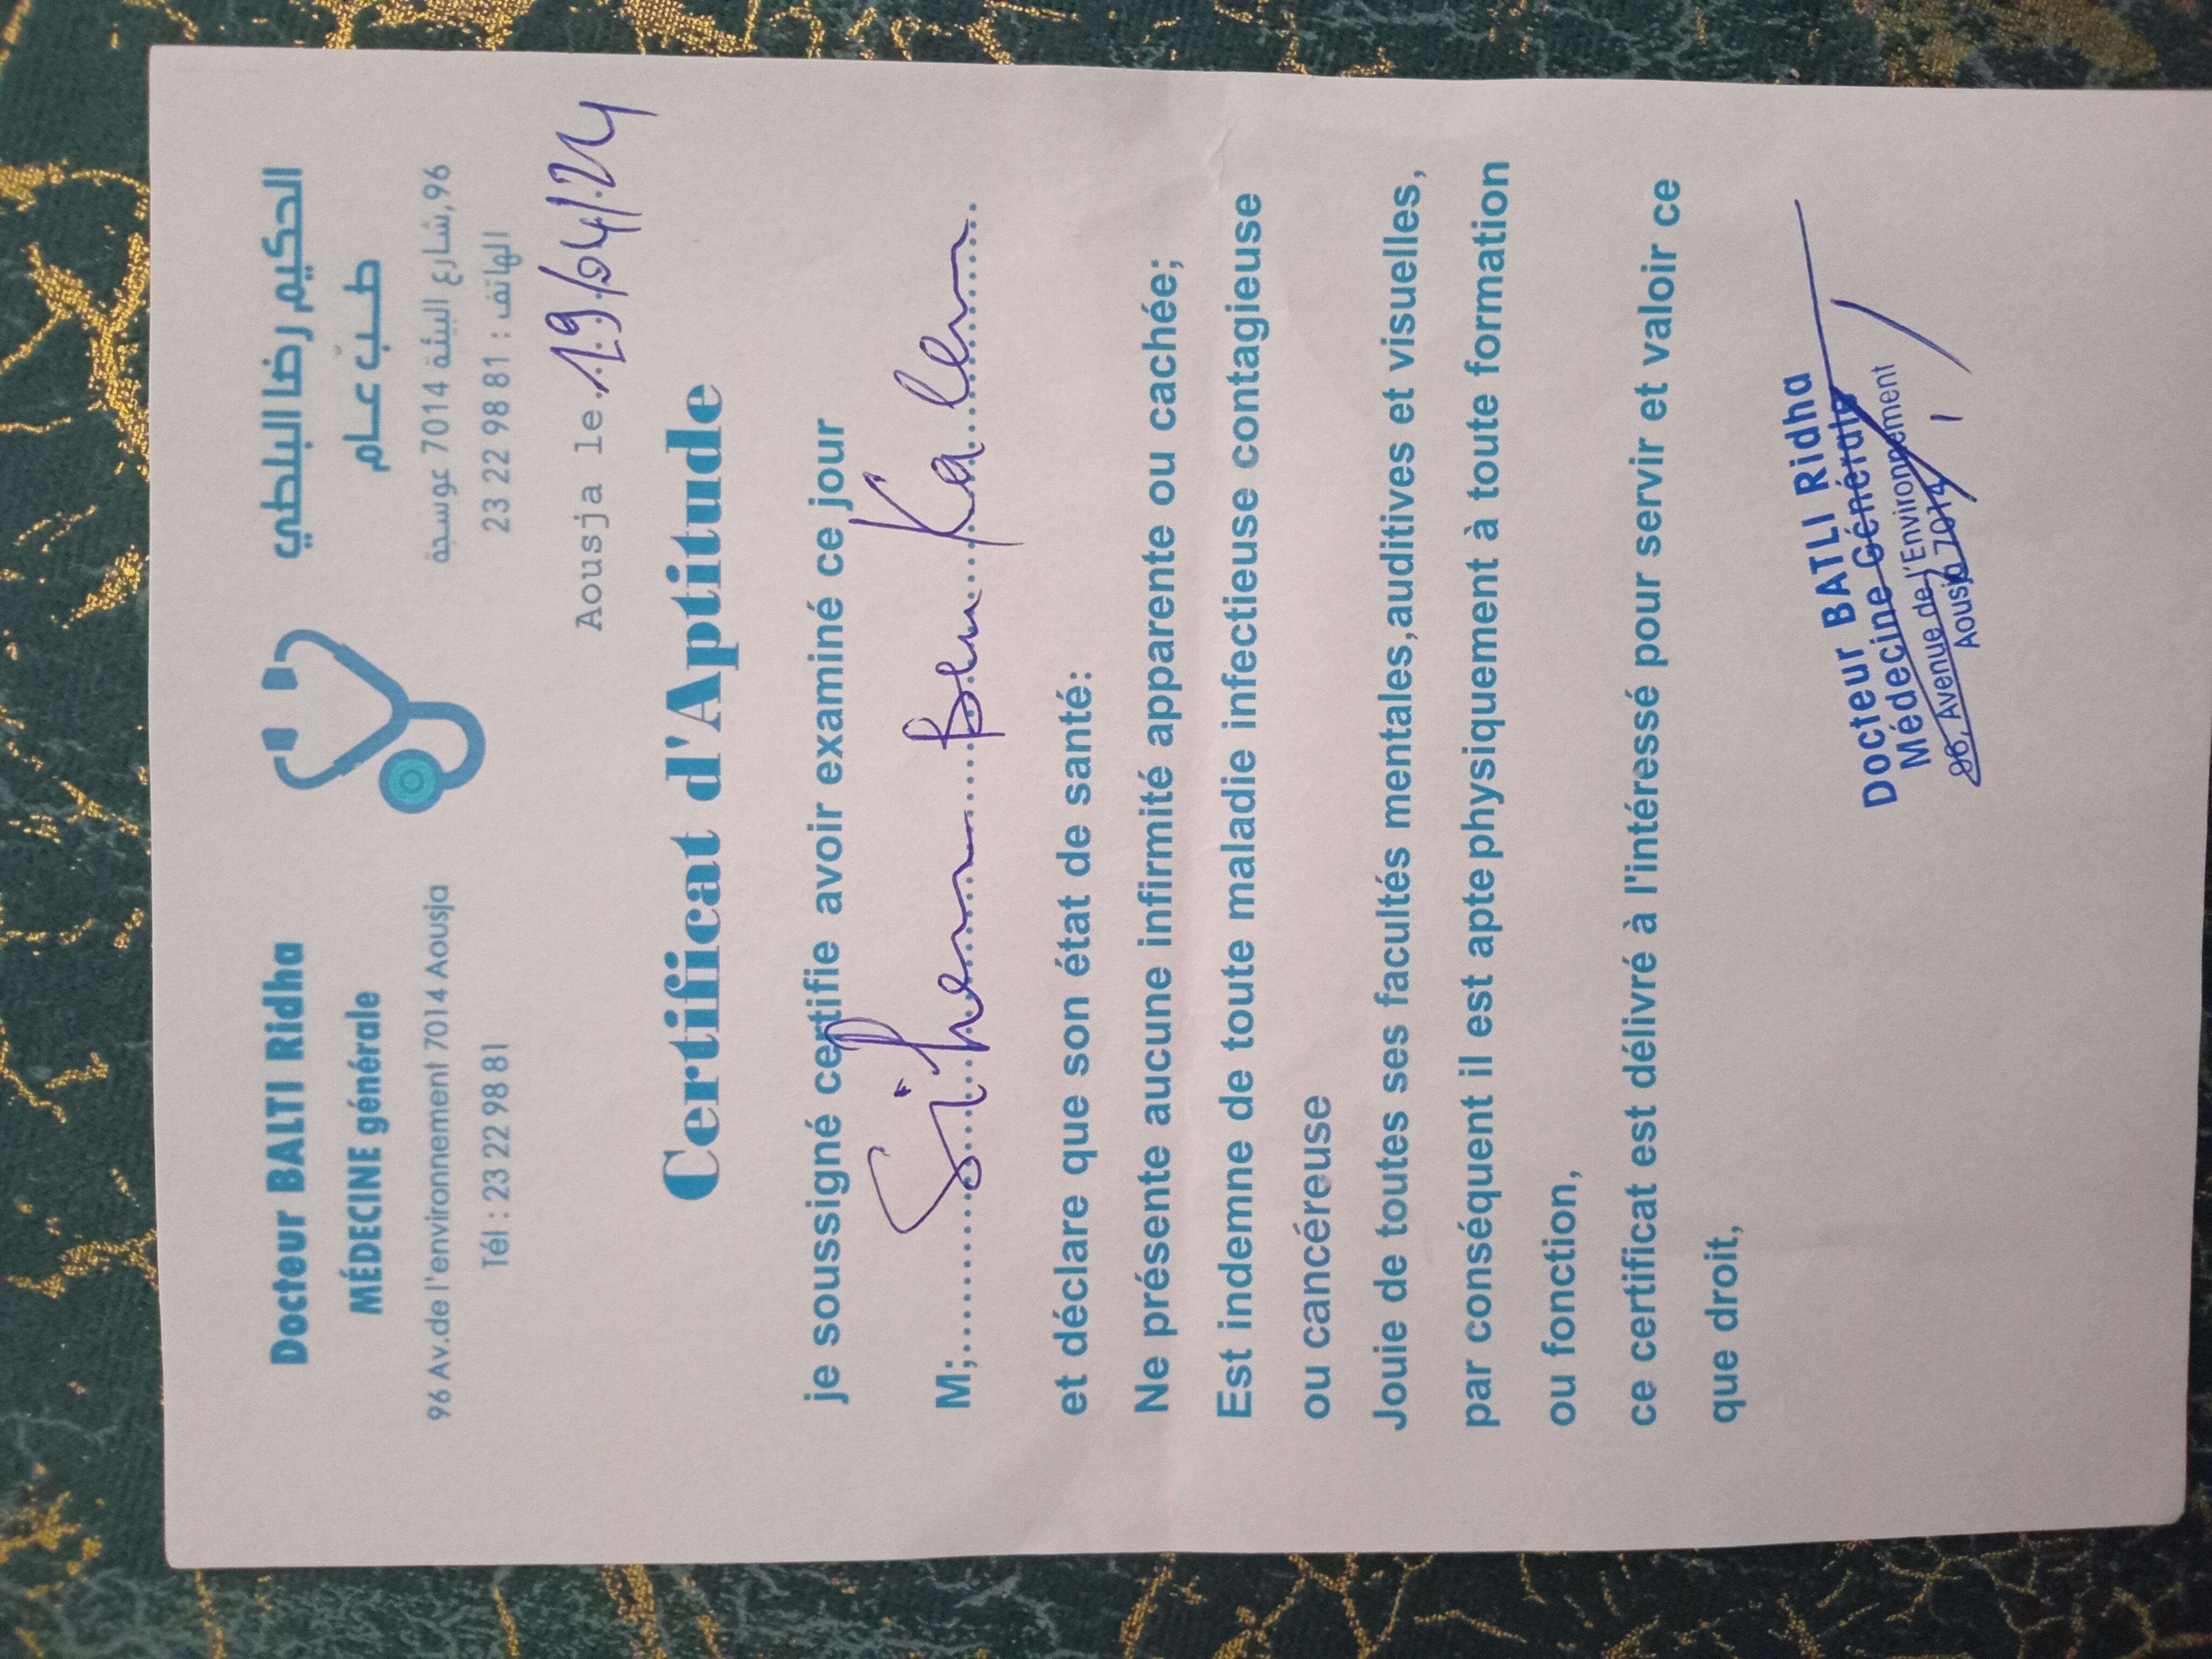 Docteur BALTI Ridha
MÉDECINE générale
96 Av.de l'environnement 7014 Aousja
Tél : 23 22 98 81
الحكيم رضا البلطي
طب عام
96,شارع البيئة 7014 عوسجة
الهاتف : 23 22 98 81
Aousja le 19/04/24
Certificat d'Aptitude
je soussigné certifie avoir examiné ce jour
M; Sihem Ben
et déclare que son état de santé:
Ne présente aucune infirmité apparente ou cachée;
Est indemne de toute maladie infectieuse contagieuse
ou cancéreuse
Jouie de toutes ses facultés mentales,auditives et visuelles,
par conséquent il est apte physiquement à toute formation
ou fonction,
ce certificat est délivré à l'intéressé pour servir et valoir ce
que droit,
Docteur BATLI Ridha
Médecine Générale
96, Avenue de l'Environnement
Aousja 7014